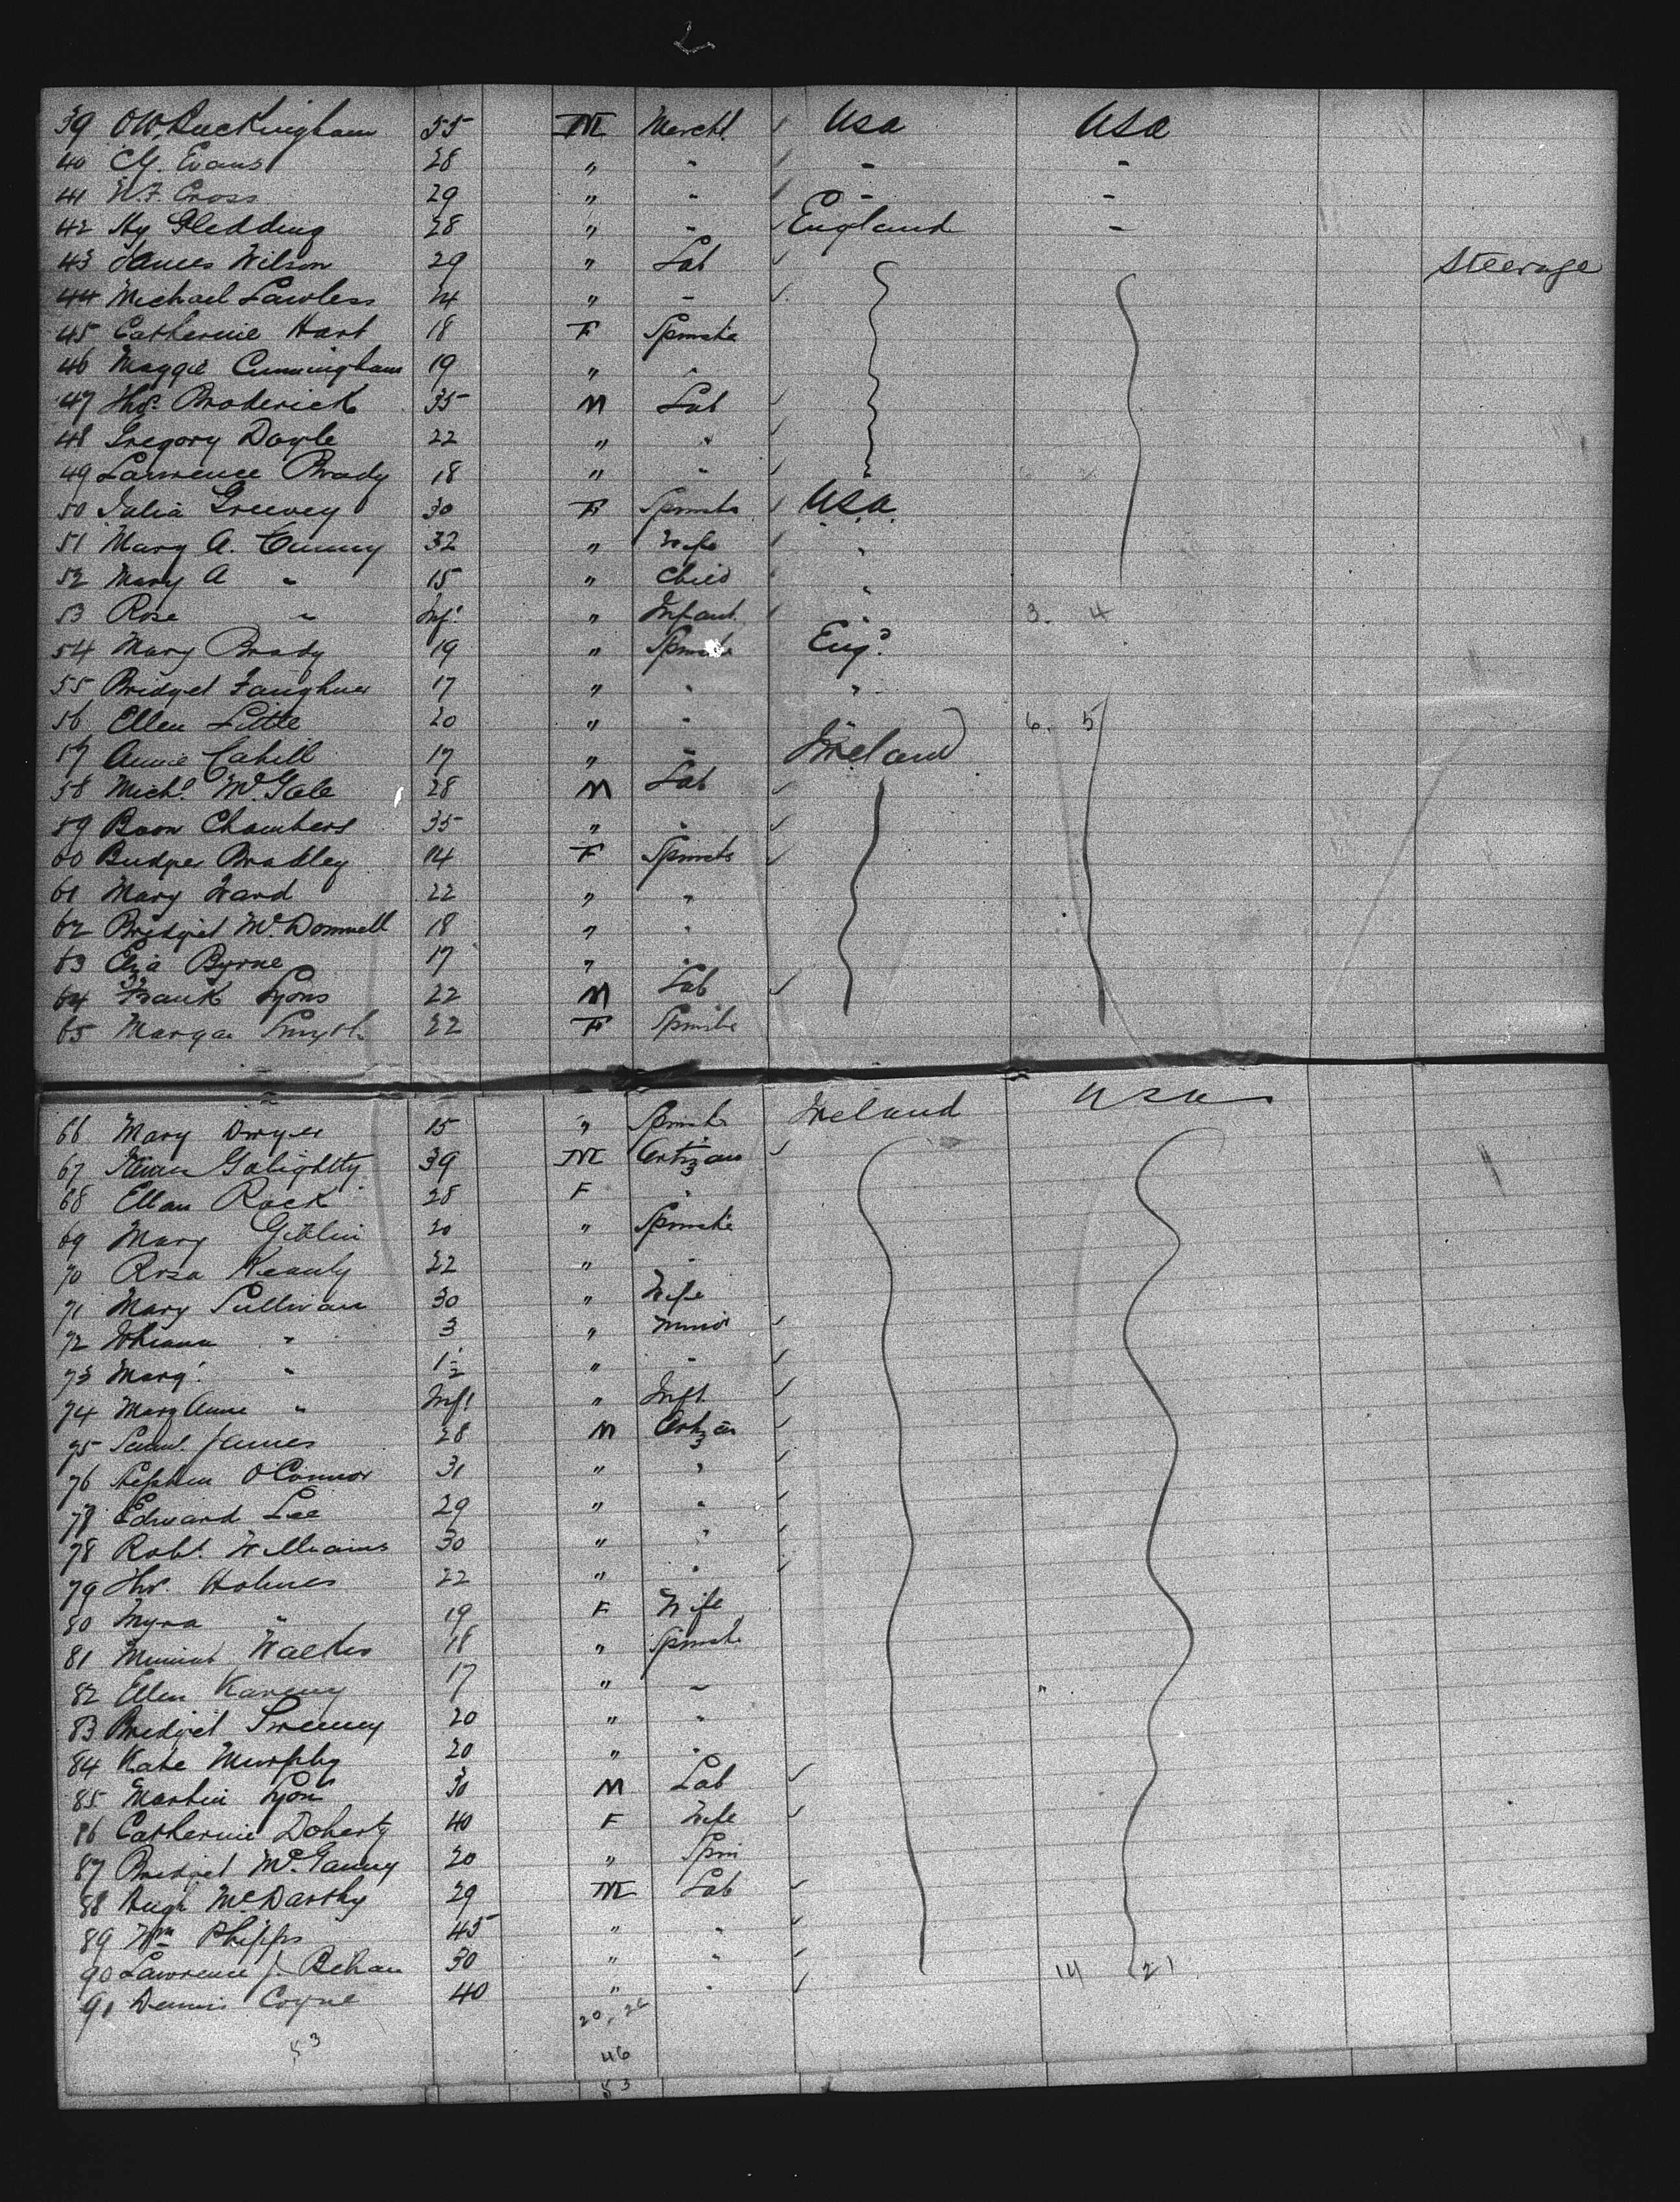 39 OW. Buckingham 55 M Mercht. USA USA
40 Cy. Evans 28 " " - -
41 W.F. Cross 29 " " - -
42 Hy Gledding 28 " " England -
43 James Wilson 29 " Lab Steerage
44 Michael Lawless 24 " -
45 Catherine Hart 18 F Spinster
46 Maggie Cunningham 19 " "
47 Thos. Broderick 35 M Lab
48 Gregory Doyle 22 " "
49 Lawrence Brady 18 " "
50 Julia Greevey 30 F Spinster USA
51 Mary A. 32 " Wife "
52 Mary A " 15 " Child "
53 Rose " Inft. " Infant " 3. 4
54 Mary Brady 19 " Eng.
55 Bridget 17 " " "
56 Ellen Little 20 " " 6. 5
57 Annie Cahill 17 " " Ireland
58 Michl. McGale 28 M Lab
59 Chambers 35 " "
60 Bradley 14 F Spinster
61 Mary Ward 22 " "
62 Bridget McDonnell 18 " "
63 Eliza Byrne 17 " "
64 Frank Lyons 22 M Lab
65 Smyth 22 F Spinster
66 Mary Dwyer 15 " Spinster Ireland USA
67 39 M Artizan
68 Ellen Rock 28 F "
69 Mary Giblin 20 " Spinster
70 Rosa 22 " "
71 Mary Sullivan 30 " Wife
72 " 3 " Minor
73 Margt. " 1½ " "
74 Mary Anne " Inft " Inft.
75 Saml. James 28 M Artizan
76 Stephen O'Connor 31 " "
77 Edward Lee 29 " "
78 Robt. Williams 30 " "
79 Thos. Holmes 22 " "
80 Myra " 19 F Wife
81 18 " Spinster
82 Ellen 17 " "
83 Bridget Sweeney 20 " "
84 Kate Murphy 20 " "
85 Martin Lyons 30 M Lab
86 Catherine Doherty 40 F Wife
87 Bridget 20 " Spin
88 Hugh 29 M Lab
89 Wm Phipps 45 " "
90 Lawrence J. Behan 30 " " 14 (21
91 Dennis Coyne 40 " "
20. 26
53 46
53